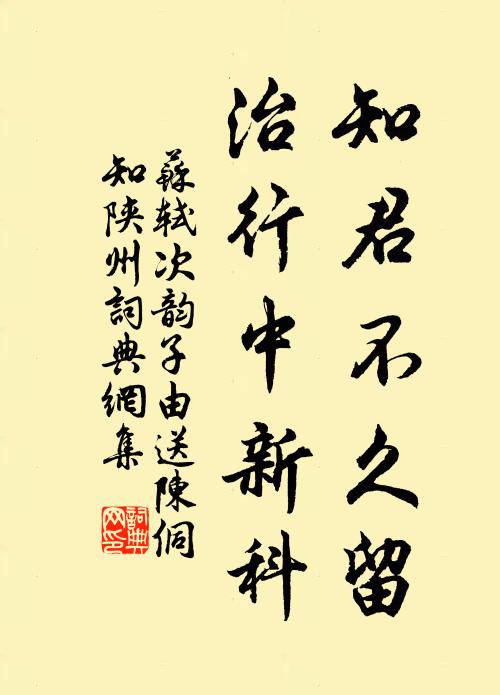 知君不久留
治行中新科
蘇軾次韵子由送陳侗
知陝州詞典網集
詞典
网印